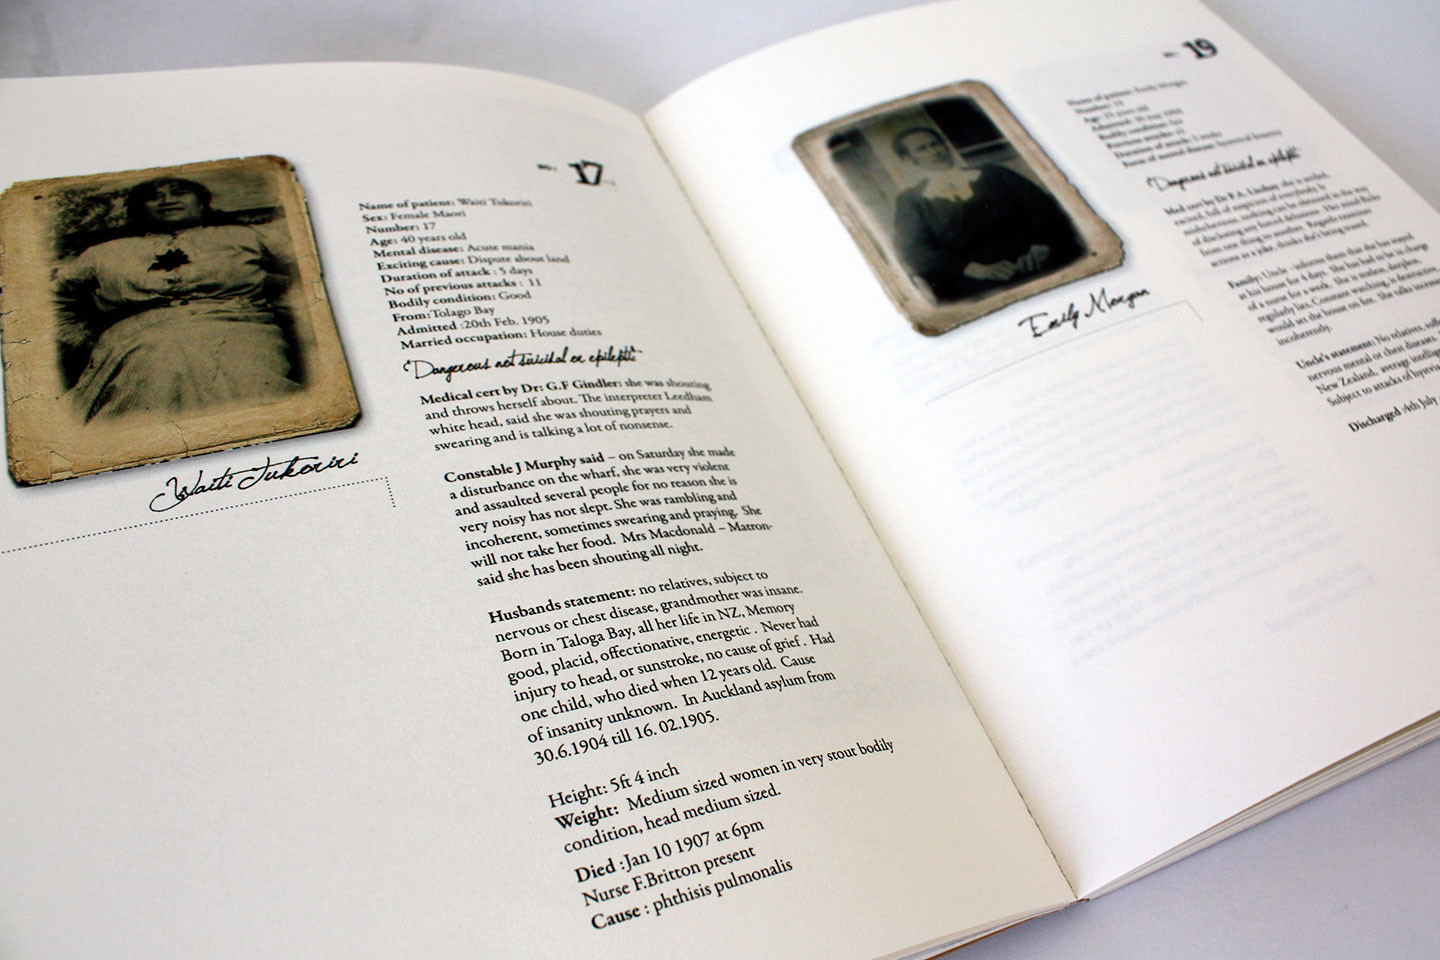 No: 17
Waiti Tukoriri
Name of patient: Waiti Tukoriri
Sex: Female Maori
Number: 17
Age: 40 years old
Mental disease: Acute mania
Exciting cause: Dispute about land
Duration of attack : 5 days
No of previous attacks : 11
Bodily condition: Good
From:Tolago Bay
Admitted :20th Feb. 1905
Married occupation: House duties
"Dangerous not suicidal or epileptic"
Medical cert by Dr: G.F Gindler: she was shouting
and throws herself about. The interpreter Leedham
white head, said she was shouting prayers and
swearing and is talking a lot of nonsense.
Constable J Murphy said – on Saturday she made
a disturbance on the wharf, she was very violent
and assaulted several people for no reason she is
very noisy has not slept. She was rambling and
incoherent, sometimes swearing and praying. She
will not take her food. Mrs Macdonald – Matron-
said she has been shouting all night.
Husbands statement: no relatives, subject to
nervous or chest disease, grandmother was insane.
Born in Taloga Bay, all her life in NZ, Memory
good, placid, offectionative, energetic . Never had
injury to head, or sunstroke, no cause of grief . Had
one child, who died when 12 years old. Cause
of insanity unknown. In Auckland asylum from
30.6.1904 till 16. 02.1905.
Height: 5ft 4 inch
Weight: Medium sized women in very stout bodily
condition, head medium sized.
Died :Jan 10 1907 at 6pm
Nurse F.Britton present
Cause : phthisis pulmonalis
19
Emily Morgan
Name of patient: Emily Morgan
Number: 19
Bodily condition:
Previous attacks:
Duration of attack: 3 weeks
Form of mental disease: hysterical
"Dangerous not suicidal or epileptic"
Med cert by Dr P.A. Lindsay she is
excited, full of suspicion of everybody. Is
mischievous, nothing can be obtained in the way
of disclosing any forced delusion. Her mind flicks
from one thing to another. Regards
actions as a joke, thinks she's being teased.
Family: Uncle - informs them she has stayed
at his house for 4 days. She has had to be in charge
of a nurse for a week. She is restless, sleepless,
regularly lies. Constant watching, is destructive,
would set the house on fire. She talks
incoherently.
Uncle's statement: No relatives,
nervous mental or chest diseases.
New Zealand, average
Subject to attacks of
Discharged :4th July